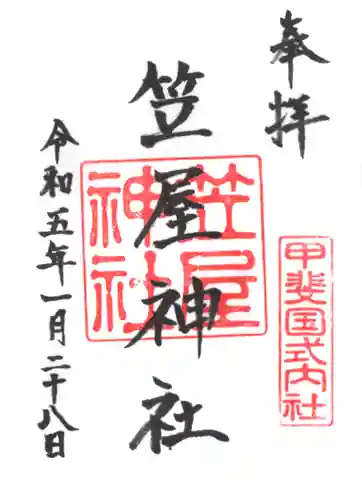 奉拝
甲斐国式内社
笠屋神社
笠屋神社
令和五年一月二十八日